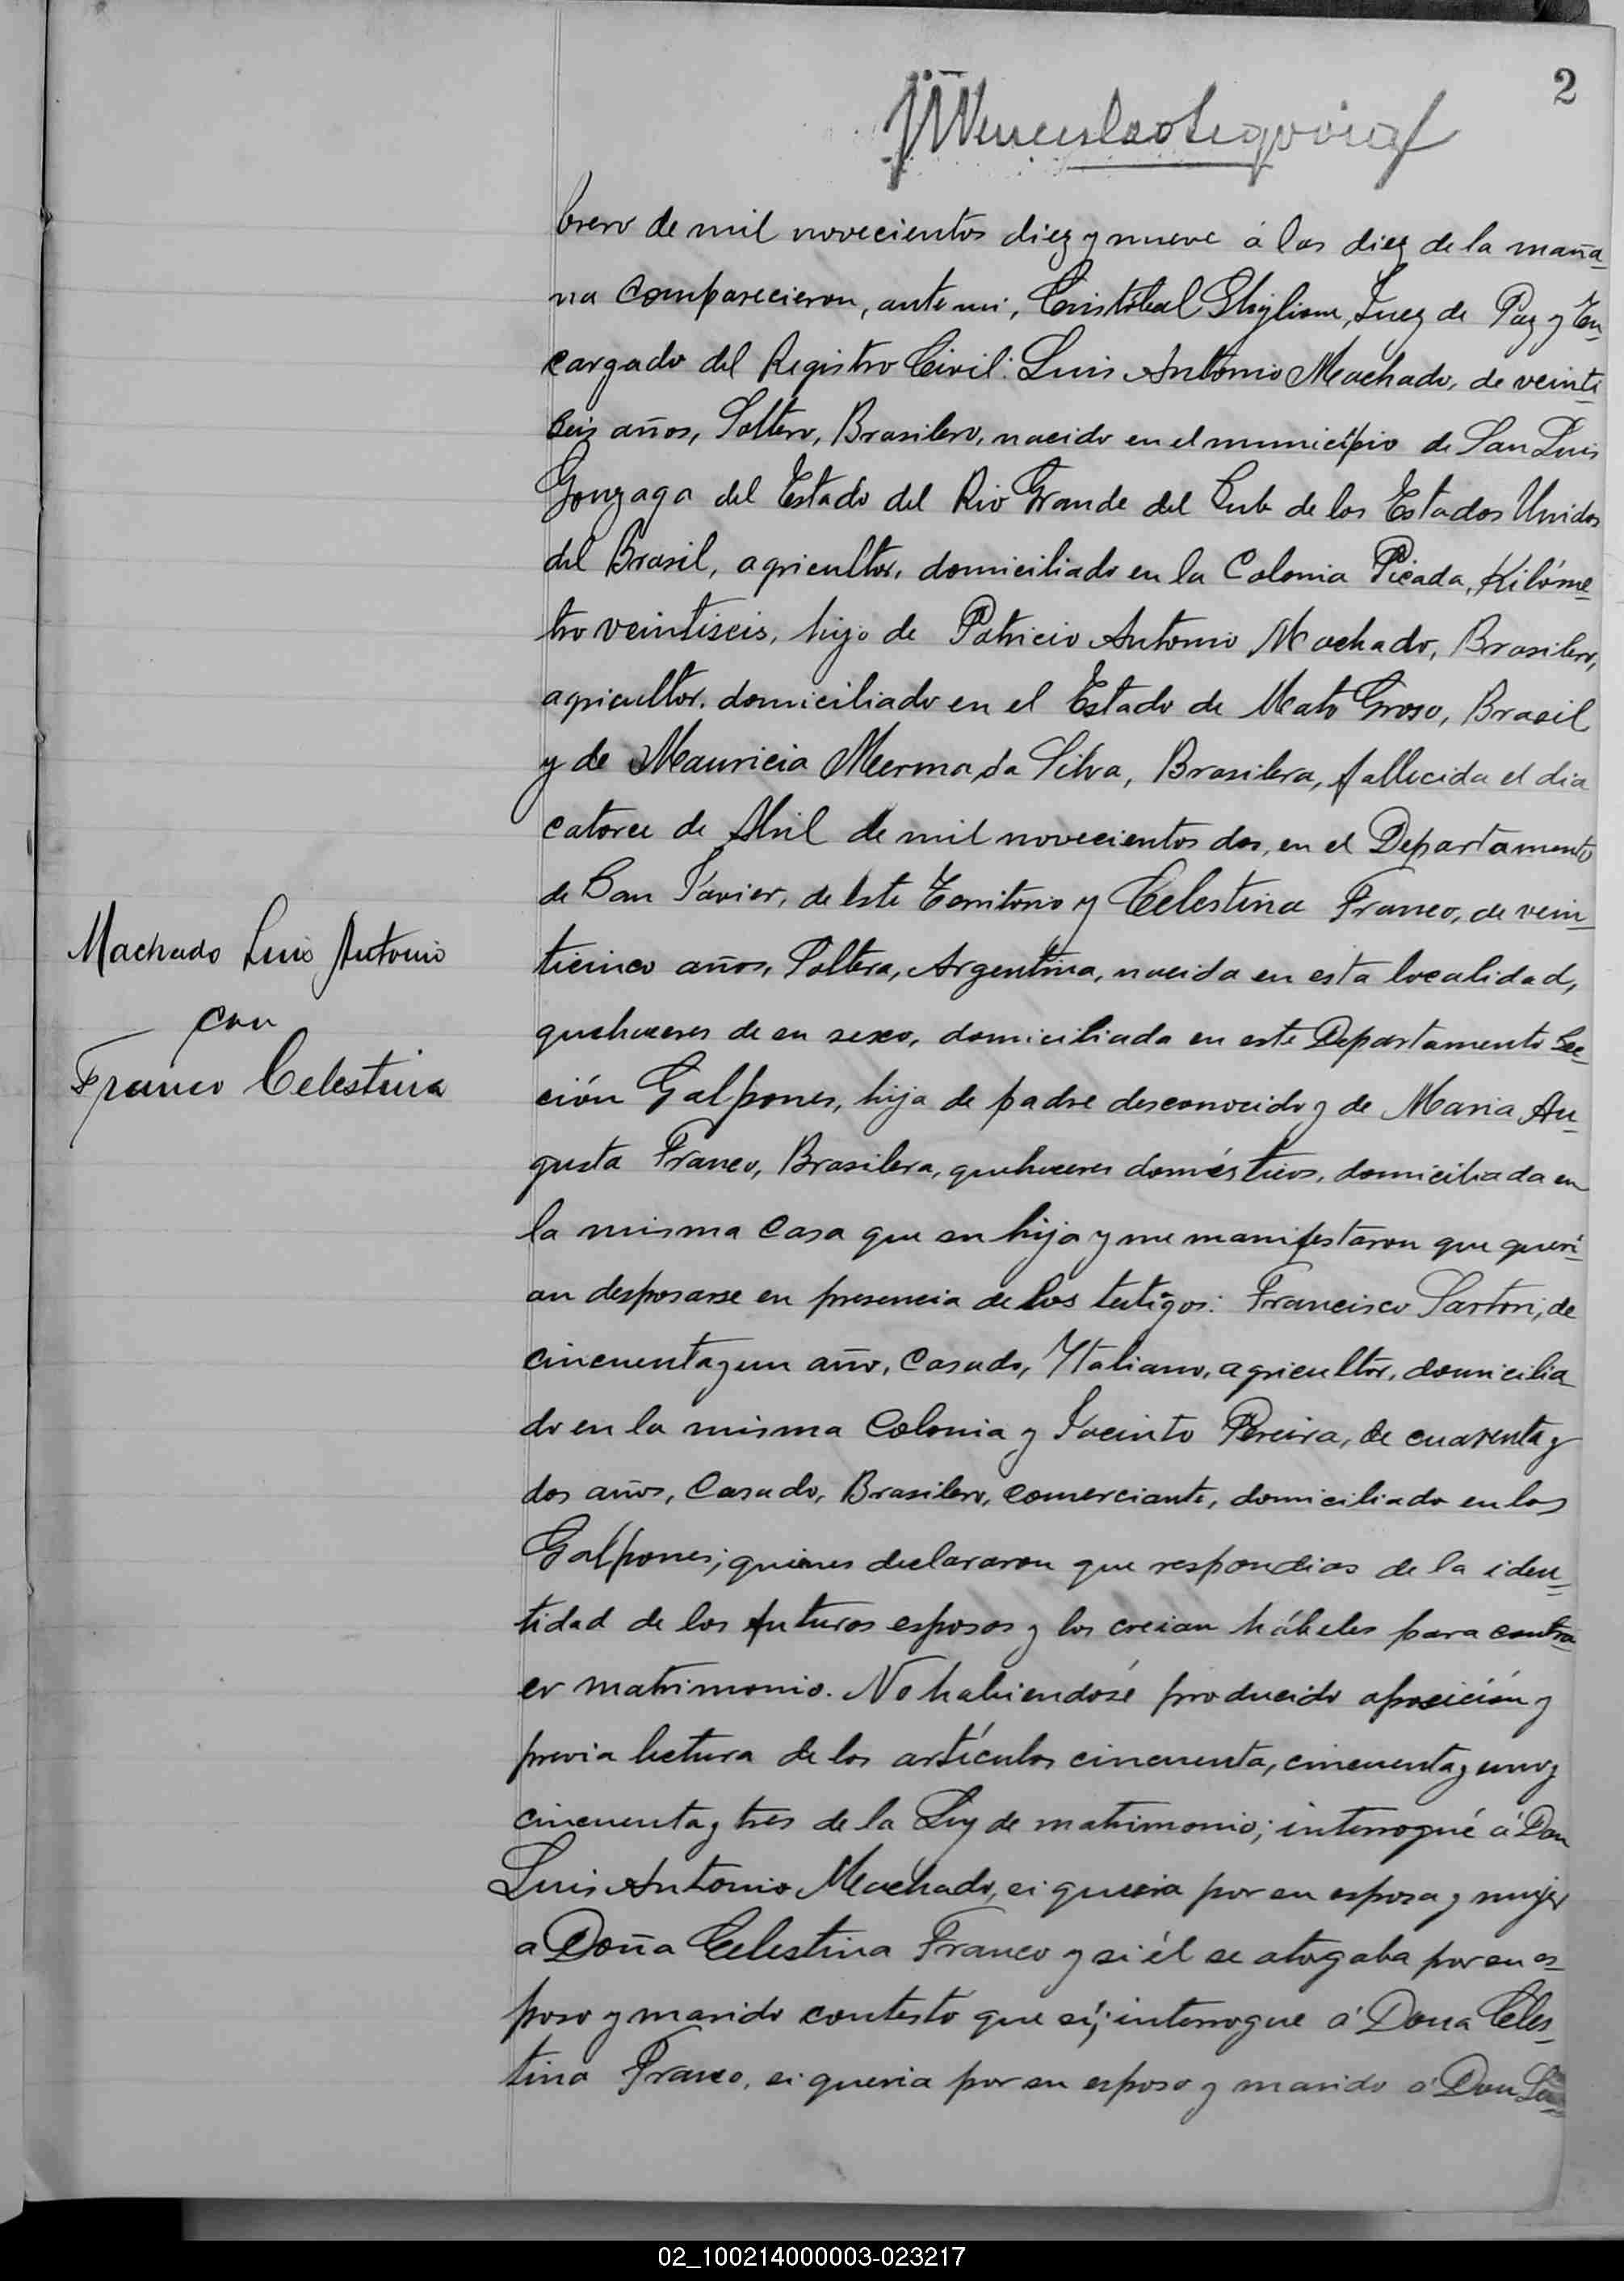 2
brero de mil novecientos diez y nueve á las diez de la maña-
na comparecieron, ante mi, Cristóbal Ghiglione, Juez de Paz y En-
cargado del Registro Civil: Luis Antonio Machado, de veinti-
seis años, Soltero, Brasilero, nacido en el municipio de San Luis
Gonzaga del Estado del Rio Grande del Sub de los Estados Unidos
del Brasil, agricultor, domiciliado en la Colonia Picada, Kilóme-
tro veintiseis, hijo de Patricio Antonio Machado, Brasilero,
agricultor, domiciliado en el Estado de Mato Groso, Brasil
y de Mauricia da Silva, Brasilera, fallecida el dia
catorce de Abril de mil novecientos dos, en el Departamento
de San Javier, de este Territorio y Celestina Franco, de vein-
Machado Luis Antonio
con
Franco Celestina
ticinco años, Soltera, Argentina, nacida en esta localidad,
quehaceres de su sexo, domiciliada en este Departamento Sec-
ción Galpones, hija de padre desconocido y de Maria Au-
gusta Franco, Brasilera, quehaceres domésticos, domiciliada en
la misma casa que su hija y me manifestaron que querí-
an desposarse en presencia de los testigos: Francisco Sartori, de
cincuenta y un año, Casado, Ytaliano, agricultor, domicilia-
do en la misma Colonia y Jacinto Pereira, de cuarenta y
dos años, Casado, Brasilero, comerciante, domiciliado en los
Galpones; quienes declararon que respondias de la iden-
tidad de los futuros esposos y los creian hábiles para contra-
er matrimonio. No habiendosé producido oposición y
previa lectura de los artículos cincuenta, cincuenta y uno y
cincuenta y tres de la Ley de matrimonio; interrogué á Don
Luis Antonio Machado, si queria por su esposa y mujer
a Doña Celestina Franco y si él se otogaba por su es-
poso y marido contestó que sí; interrogue á Dona Celes-
tina Franco, si queria por su esposo y marido á Don Lu-
02_100214000003-023217